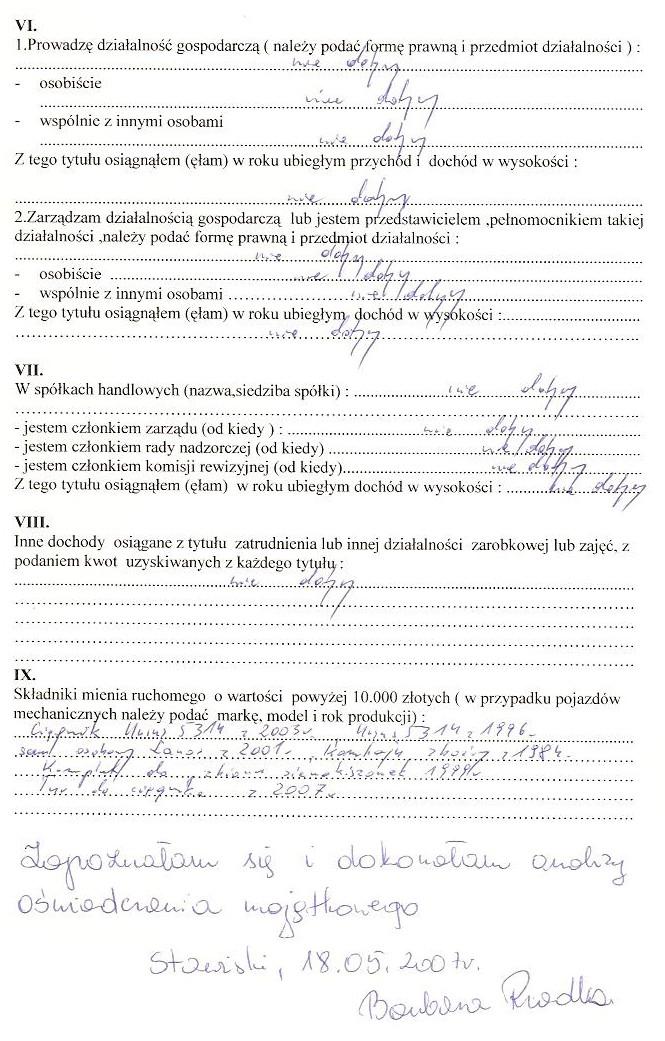 VI.
1.Prowadzę działalność gospodarczą ( należy podać formę prawną i przedmiot działalności ) :
nie dotyczy
- osobiście
nie dotyczy
- wspólnie z innymi osobami
nie dotyczy
Z tego tytułu osiągnąłem (ęłam) w roku ubiegłym przychód i dochód w wysokości :
nie dotyczy
2.Zarządzam działalnością gospodarczą lub jestem przedstawicielem ,pełnomocnikiem takiej
działalności ,należy podać formę prawną i przedmiot działalności :
nie dotyczy
- osobiście nie dotyczy
- wspólnie z innymi osobami nie dotyczy
Z tego tytułu osiągnąłem (ęłam) w roku ubiegłym dochód w wysokości :
nie dotyczy
VII.
W spółkach handlowych (nazwa,siedziba spółki) : nie dotyczy
- jestem członkiem zarządu (od kiedy ) : nie dotyczy
- jestem członkiem rady nadzorczej (od kiedy) nie dotyczy
- jestem członkiem komisji rewizyjnej (od kiedy) nie dotyczy
Z tego tytułu osiągnąłem (ęłam) w roku ubiegłym dochód w wysokości : nie dotyczy
VIII.
Inne dochody osiągane z tytułu zatrudnienia lub innej działalności zarobkowej lub zajęć, z
podaniem kwot uzyskiwanych z każdego tytułu :
nie dotyczy
IX.
Składniki mienia ruchomego o wartości powyżej 10.000 złotych ( w przypadku pojazdów
mechanicznych należy podać markę, model i rok produkcji) :
Ciągnik Ursus 5314 z 2003r. Ursus 5314 z 1996
sam osobowy Lanos z 2001r. Kombajn zboż z 1984
Komplet do zbioru 1999r
Tur do ciągnika z 2007
Zapoznałam się i dokonałam analizy
oświadczenia majątkowego
Stawiski, 18.05.2007r.
Barbara